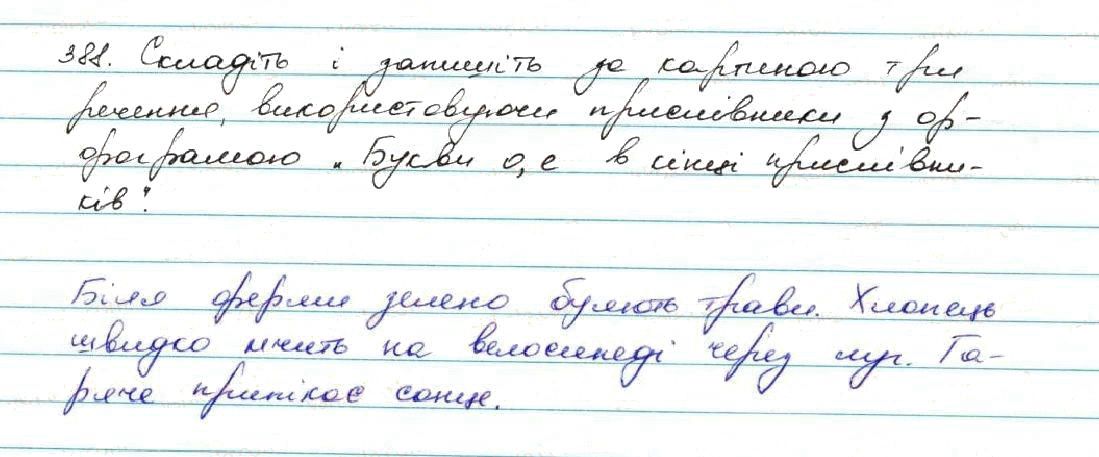 388. Складіть і запишіть за картиною три
речення, використовуючи прислівники з ор-
фограмою „Букви о, е в кінці прислівни-
ків".
Біля ферми зелено буяють трави. Хлопець
швидко мчить на велосипеді через луг. Га-
ряче припікає сонце.